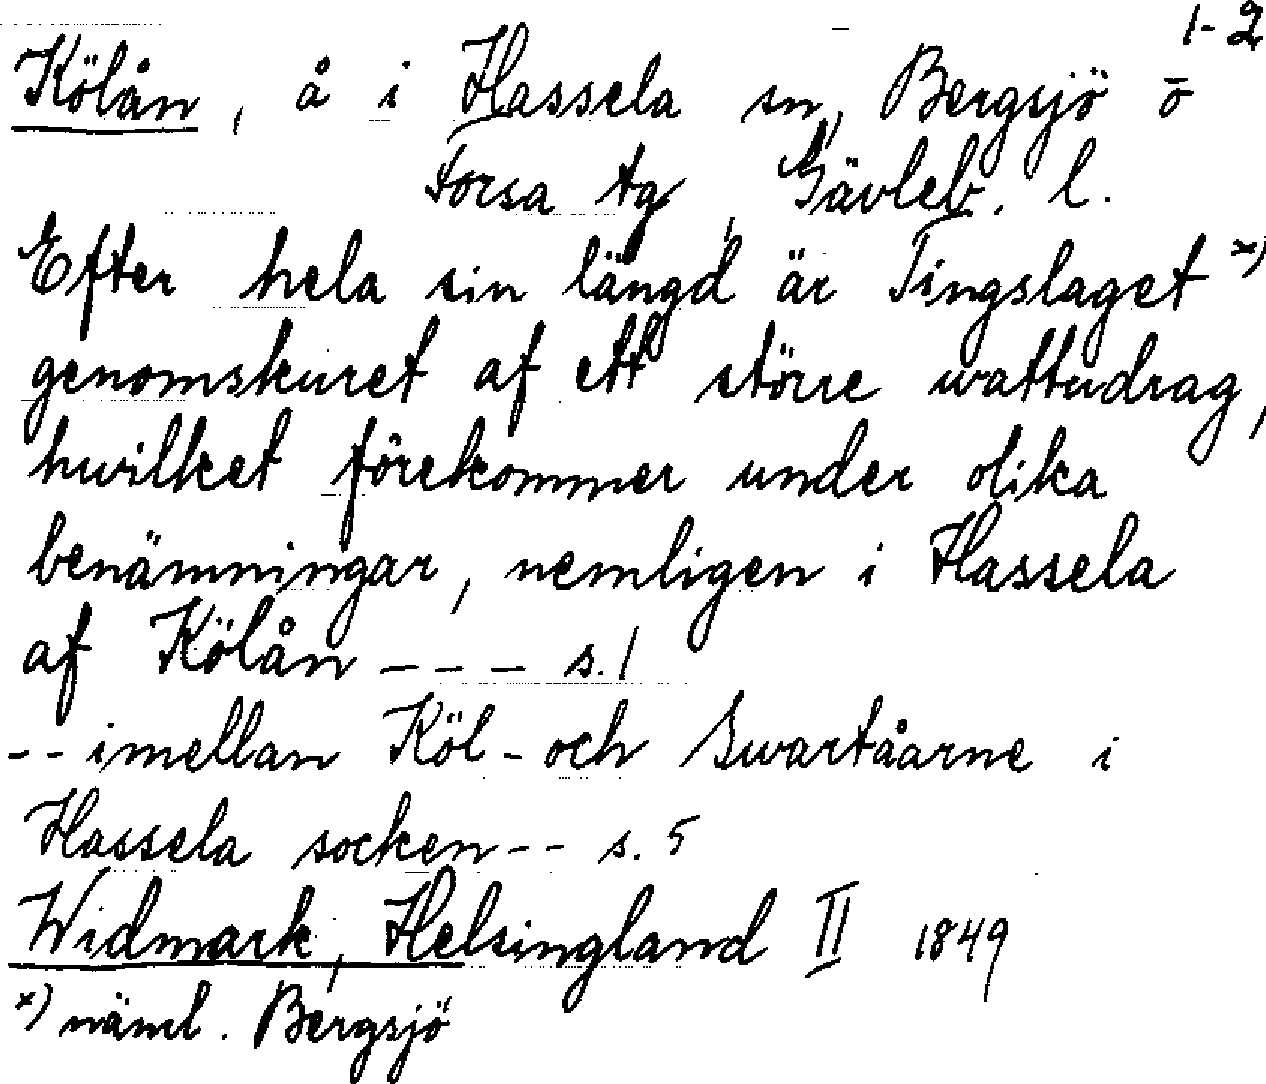 1-2
Kölån, å i Hassela sn, Bergsjö o
Forsa tg, Gävleb. l.
Efter hela sin längd är Tingslaget x)
genomskuret af ett större wattudrag,
hwilket förekommer under olika
benämningar, nemligen i Hassela
af Kölån - - - s. 1
- - imellan Köl- och Swartåarne i
Hassela socken - - s. 5
Widmark, Helsingland II 1849
x) näml. Bergsjö